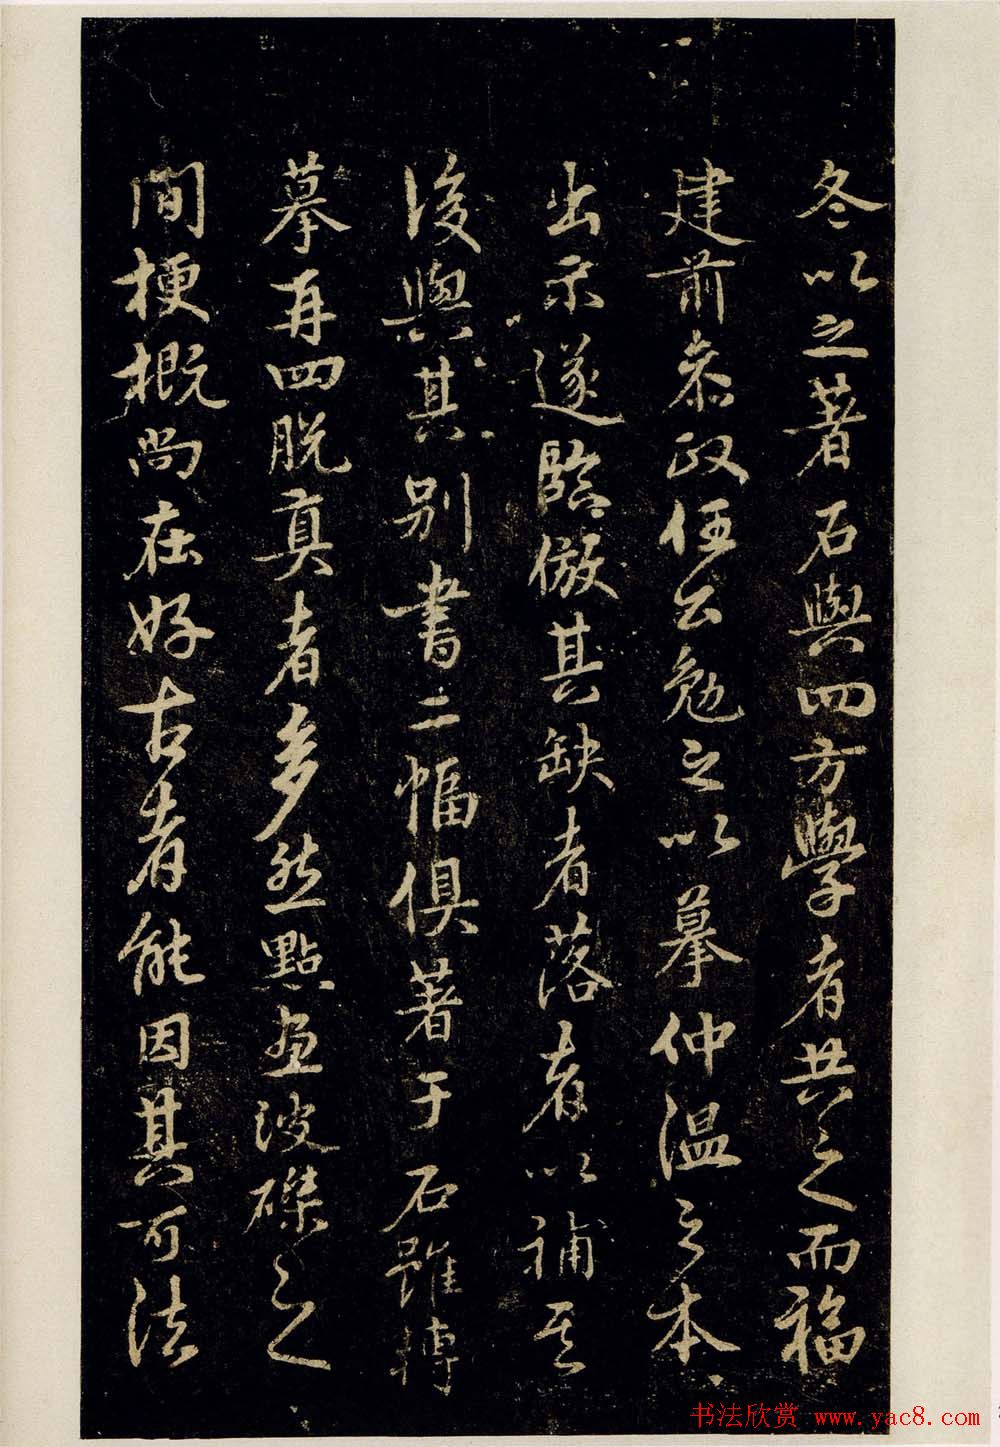 冬以之著石與四方學者共之而福
建前叅政任公勉之以摹仲温之本
出示遂臨倣其缺者落者以補其
後與其別書二幅俱著于石雖轉
摹再四脱真者多然點畫波磔之
間梗概尚在好古者能因其可法
书法欣赏 www.yac8.com